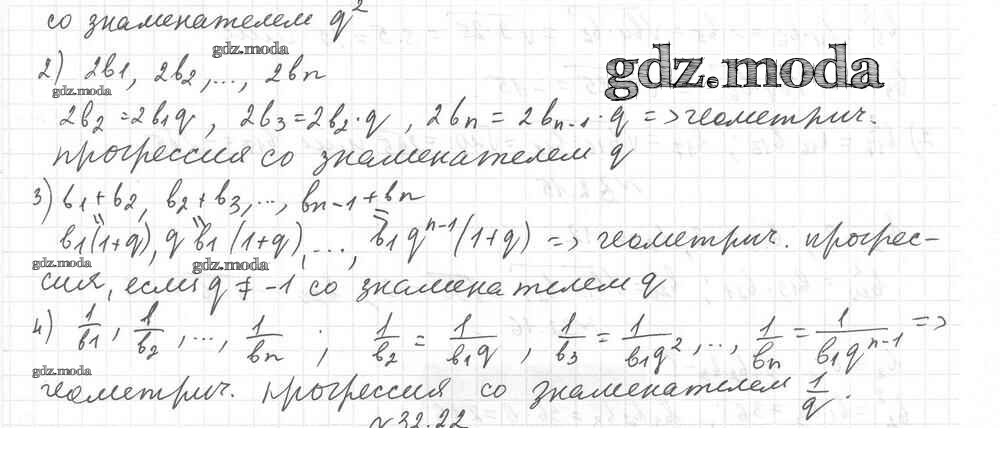 со знаменателем q²
gdz.moda
gdz.moda
2) 2b1, 2b2,..., 2bn
gdz.moda
2b2 = 2b1q, 2b3 = 2b2·q, 2bn = 2bn-1·q => геометрич.
прогрессия со знаменателем q
3) b1+b2, b2+b3,..., bn-1+bn
b1(1+q), q b1(1+q),..., b1qⁿ⁻¹(1+q) => геометрич. прогрес-
gdz.moda
gdz.moda
сия, если q ≠ -1 со знаменателем q
4) 1/b1, 1/b2,..., 1/bn; 1/b2 = 1/b1q, 1/b3 = 1/b1q²,..., 1/bn = 1/b1qⁿ⁻¹, =>
gdz.moda
геометрич. прогрессия со знаменателем 1/q.
№32.22